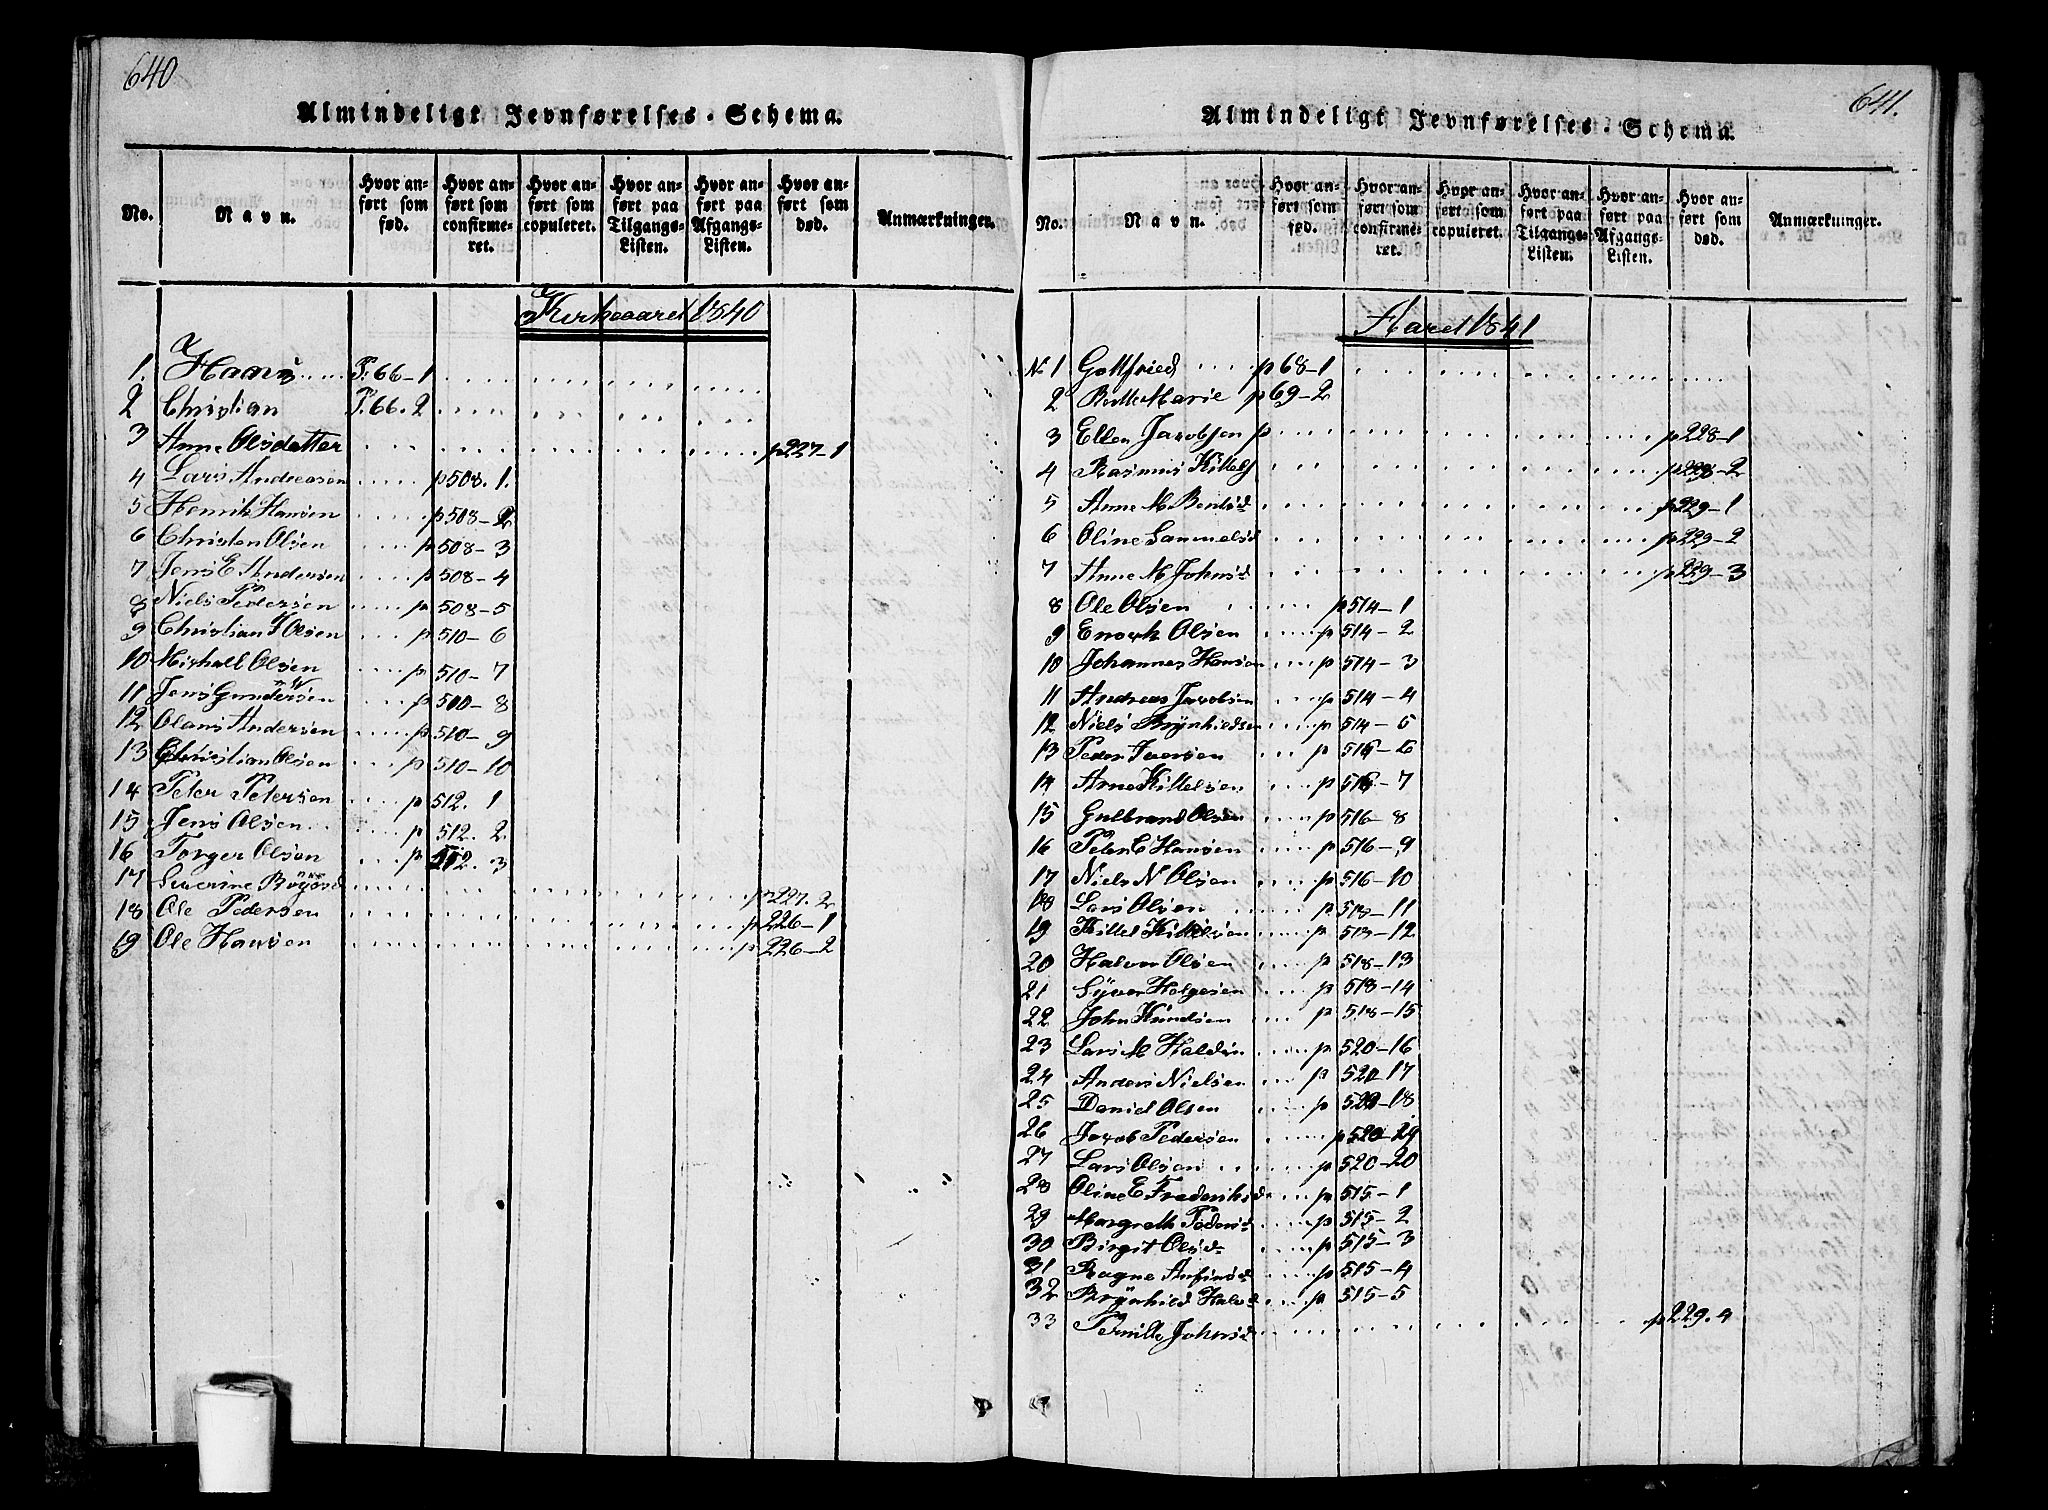 640
Almindeligt Jevnførelses-Schema.
No.
Navn.
Hvor anført som fød.
Hvor anført som confirmeret.
Hvor anført som copuleret.
Hvor anført paa Tilgangs-Listen.
Hvor anført paa Afgangs-Listen.
Hvor anført som død.
Anmærkninger.
Kirkeaaret 1840
1. Hans P. 66-1
2 Christian P. 66. 2
3 Anne Olsdatter p 227-1
4 Lars Andreasen p 508. 1.
5 Henrik Hansen p 508-2
6 Christen Olsen p 508-3
7 Jens E Andersen p 508-4
8 Niels Pedersen p 508-5
9 Christian J Olsen p 510-6
10 Michall Olsen p 510-7
11 Jens Gundersen p 510-8
12 Olaus Andersen p 510-9
13 Christian Olsen p 510-10
14 Peter Petersen p 512. 1
15 Jens Olsen p 512. 2
16 Torger Olsen p 512. 3
17 Severine p 227. 2
18 Ole Pedersen p 226-1
19 Ole Hansen p 226-2
641.
Almindeligt Jevnførelses-Schema.
No.
Navn.
Hvor anført som fød.
Hvor anført som confirmeret.
Hvor anført som copuleret.
Hvor anført paa Tilgangs-Listen.
Hvor anført paa Afgangs-Listen.
Hvor anført som død.
Anmærkninger.
Aaret 1841
N. 1 Gottfried p 68-1
2 Berthe Marie p 69-2
3 Ellen Jacobsen p p 228-1
4 Rasmus Kittels p 228-2
5 Anne M Bentsd p 229-1
6 Oline Sammelsd p 229-2
7 Anne M Johnsd p 229-3
8 Ole Olsen p 514-1
9 Enock Olsen p 514-2
10 Johannes Hansen p 514-3
11 Andreas Jacobsen p 514-4
12 Niels Brynhildsen p 514-5
13 Peder Iversen p 516-6
14 Arne Kittelsen p 516-7
15 Gulbrand Olsen p 516-8
16 Peter C Hansen p 516-9
17 Niels N Olsen p 516-10
18 Lars Olsen p 518-11
19 Kittel Kittelsen p 518-12
20 Halvor Olsen p 518-13
21 Syver Helgesen p 518-14
22 John Knudsen p 518-15
23 Lars M p 520-16
24 Anders Nielsen p 520-17
25 Daniel Olsen p 520-18
26 Jacob Pedersen p 520-19
27 Lars Olsen p 520-20
28 Oline E Frederiksd p 515-1
29 Margreth Pedersd p 515-2
30 Birgit Olsd p 515-3
31 Ragne p 515-4
32 Brynhild Halvd p 515-5
33 Pernille Johnsd p 229. 4